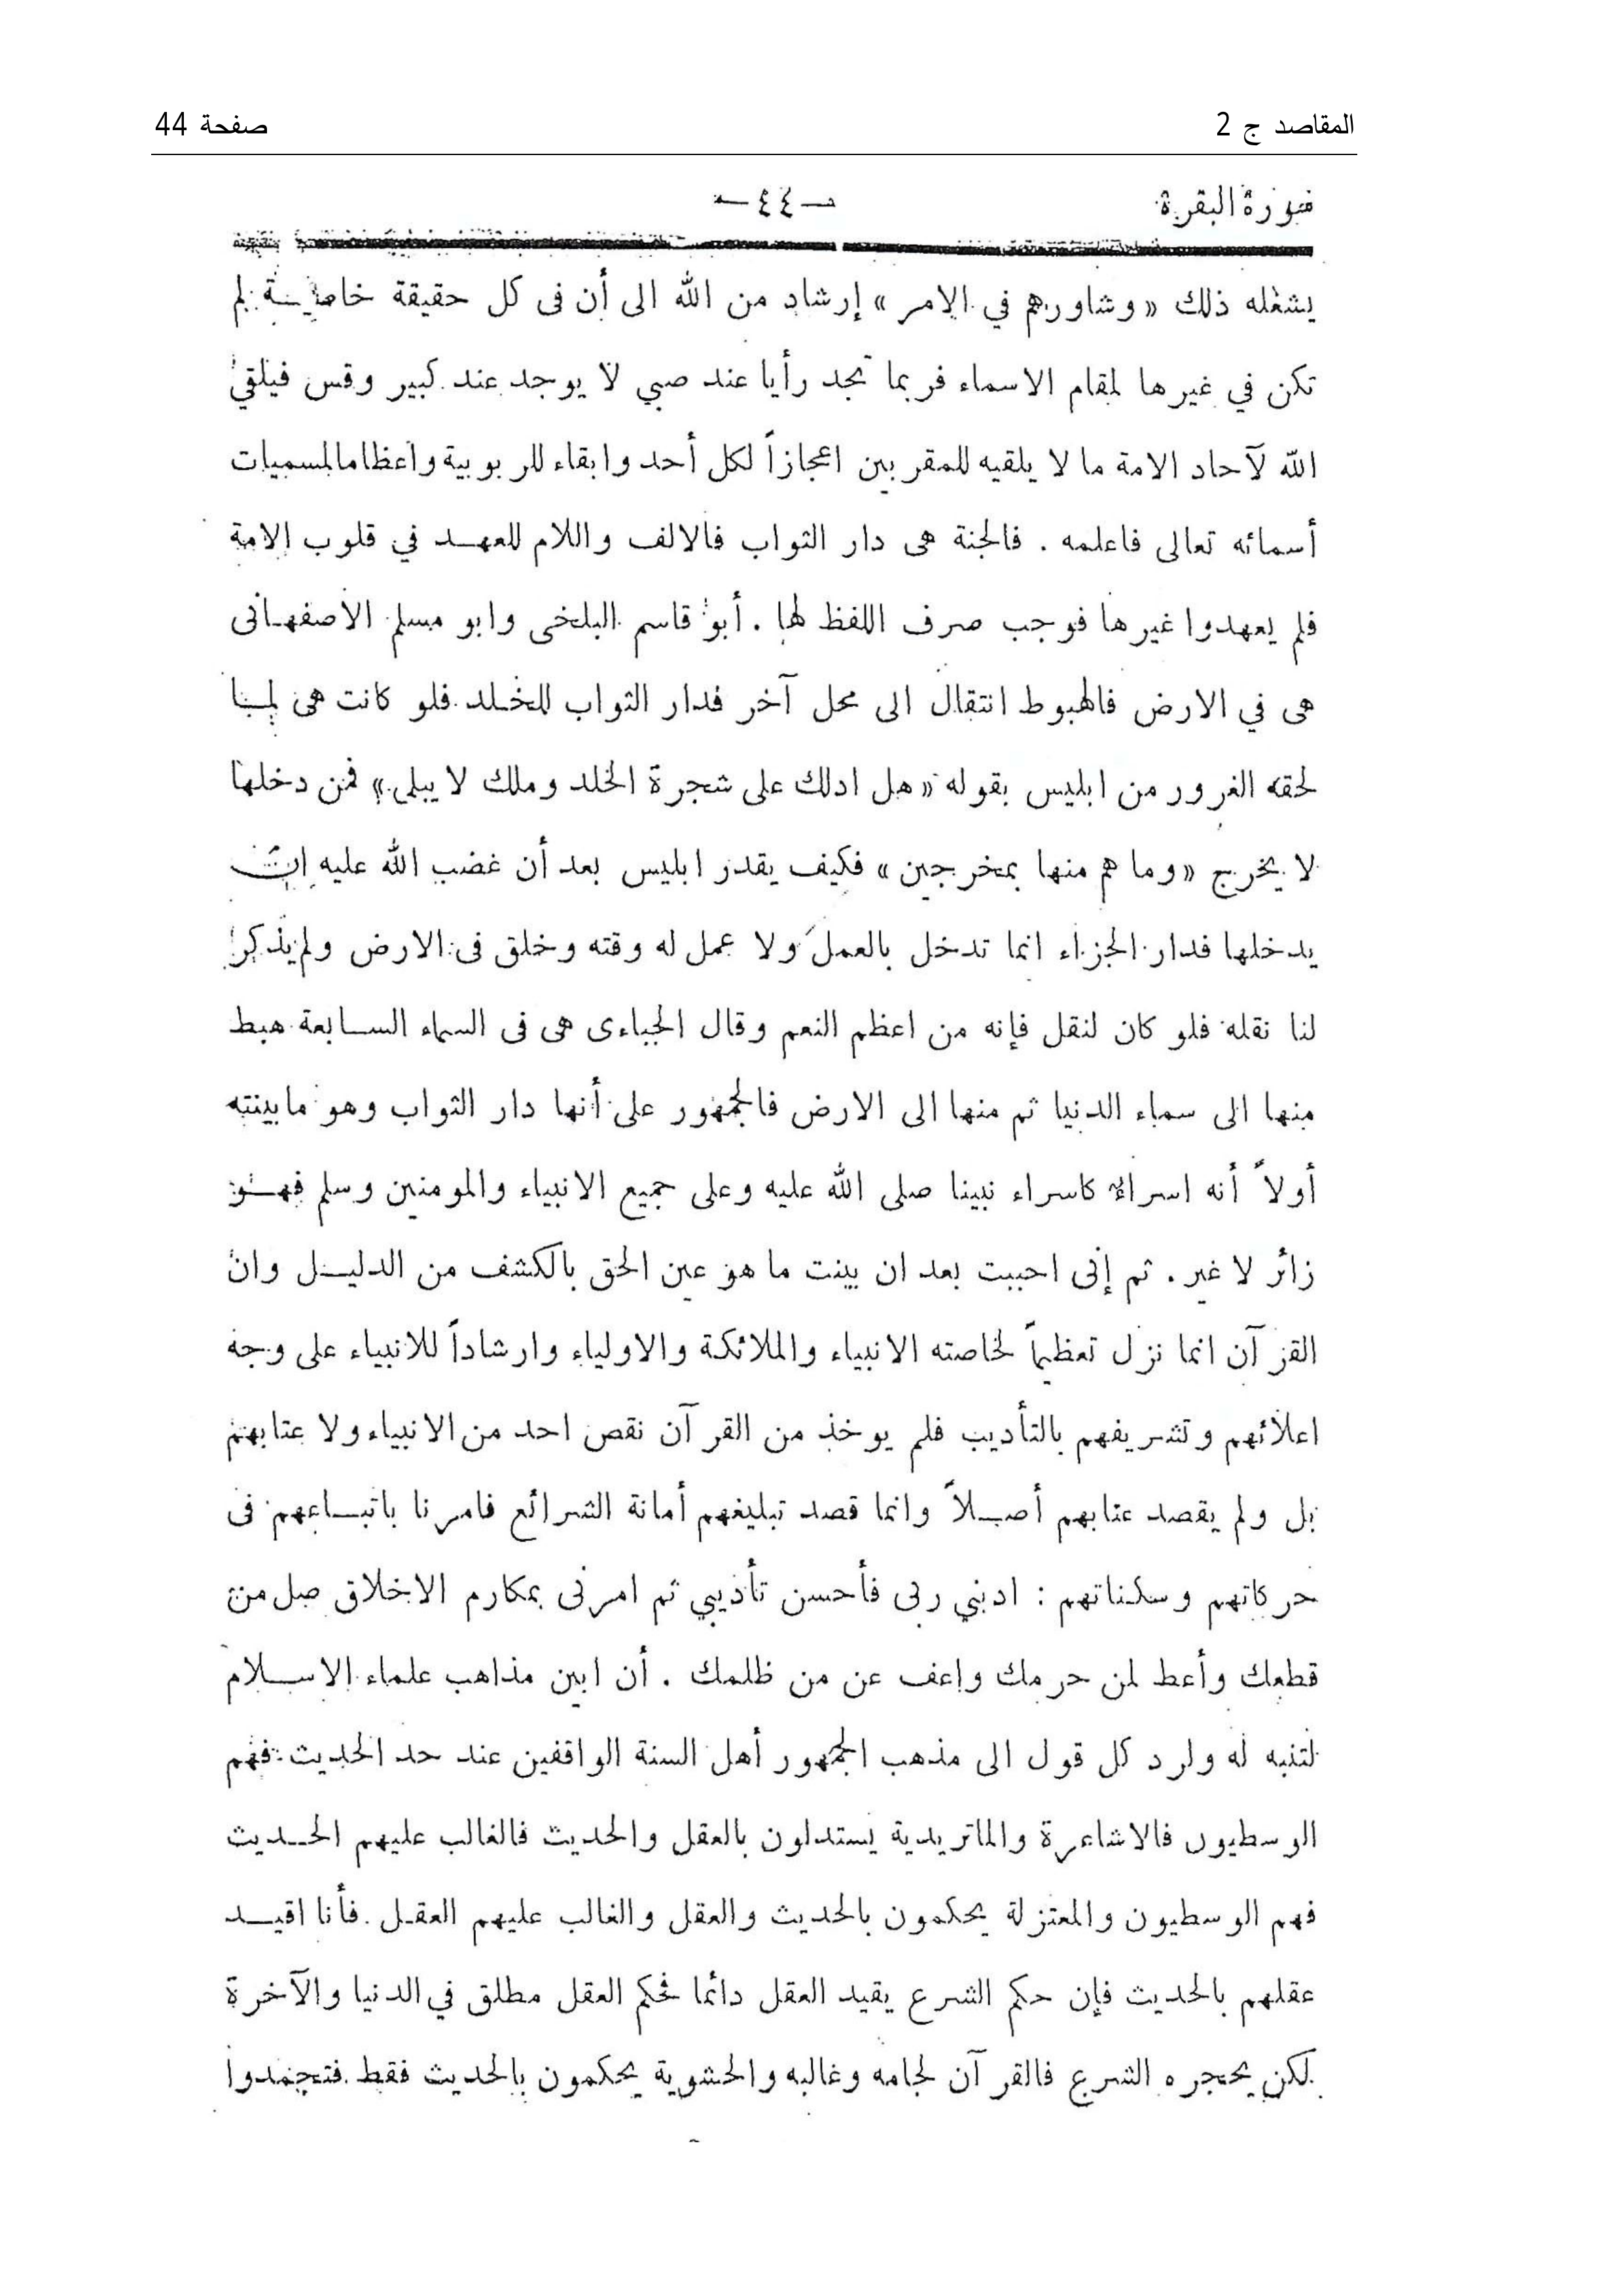 المقاصد ج 2
صفحة 44
سورة البقرة
— ٤٤ —
يشغله ذلك «وشاورهم في الامر» إرشاد من الله الى أن فى كل حقيقة خاصيــة لم
تكن في غيرها لمقام الاسماء فربما تجد رأيا عند صبي لا يوجد عند كبير وقس فيلقي
الله لآحاد الامة ما لا يلقيه للمقربين اعجازاً لكل أحد وابقاء للربوبية واعظاما لمسميات
أسمائه تعالى فاعلمه . فالجنة هى دار الثواب فالالف واللام للعهــد في قلوب الامة
فلم يعهدوا غيرها فوجب صرف اللفظ لها . أبو قاسم البلخى وابو مسلم الاصفهـانى
هى في الارض فالهبوط انتقال الى محل آخر فدار الثواب للخلد فلو كانت هى لمــا
لحقه الغرور من ابليس بقوله «هل ادلك على شجرة الخلد وملك لا يبلى» فمن دخلها
لا يخرج «وما هم منها بمخرجين» فكيف يقدر ابليس بعد أن غضب الله عليه ان
يدخلها فدار الجزاء انما تدخل بالعمل ولا عمل له وقته وخلق فى الارض ولم يذكر
لنا نقله فلو كان لنقل فإنه من اعظم النعم وقال الجباءى هى فى السماء الســابعة هبط
منها الى سماء الدنيا ثم منها الى الارض فالجمهور على أنها دار الثواب وهو ما بينته
أولاً أنه اسراء كاسراء نبينا صلى الله عليه وعلى جميع الانبياء والمومنين وسلم فهــو
زائر لا غير . ثم إنى احببت بعد ان بينت ما هو عين الحق بالكشف من الدليــل وان
القرآن انما نزل تعظيماً لخاصته الانبياء والملائكة والاولياء وارشاداً للانبياء على وجه
اعلائهم وتشريفهم بالتأديب فلم يوخذ من القرآن نقص احد من الانبياء ولا عتابهم
بل ولم يقصد عتابهم أصــلاً وانما قصد تبليغهم أمانة الشرائع فامرنا باتبــاعهم فى
حركاتهم وسكناتهم : ادبني ربى فأحسن تأديبي ثم امرنى بمكارم الاخلاق صل من
قطعك وأعط لمن حرمك واعف عن من ظلمك . أن ابين مذاهب علماء الاســلام
لتنبه له ولرد كل قول الى مذهب الجمهور أهل السنة الواقفين عند حد الحديث فهم
الوسطيون فالاشاعرة والماتريدية يستدلون بالعقل والحديث فالغالب عليهم الحــديث
فهم الوسطيون والمعتزلة يحكمون بالحديث والعقل والغالب عليهم العقـل . فأنا اقيــد
عقلهم بالحديث فإن حكم الشرع يقيد العقل دائما فحكم العقل مطلق في الدنيا والآخرة
لكن يحجره الشرع فالقرآن لجامه وغالبه والحشوية يحكمون بالحديث فقط فتجمدوا